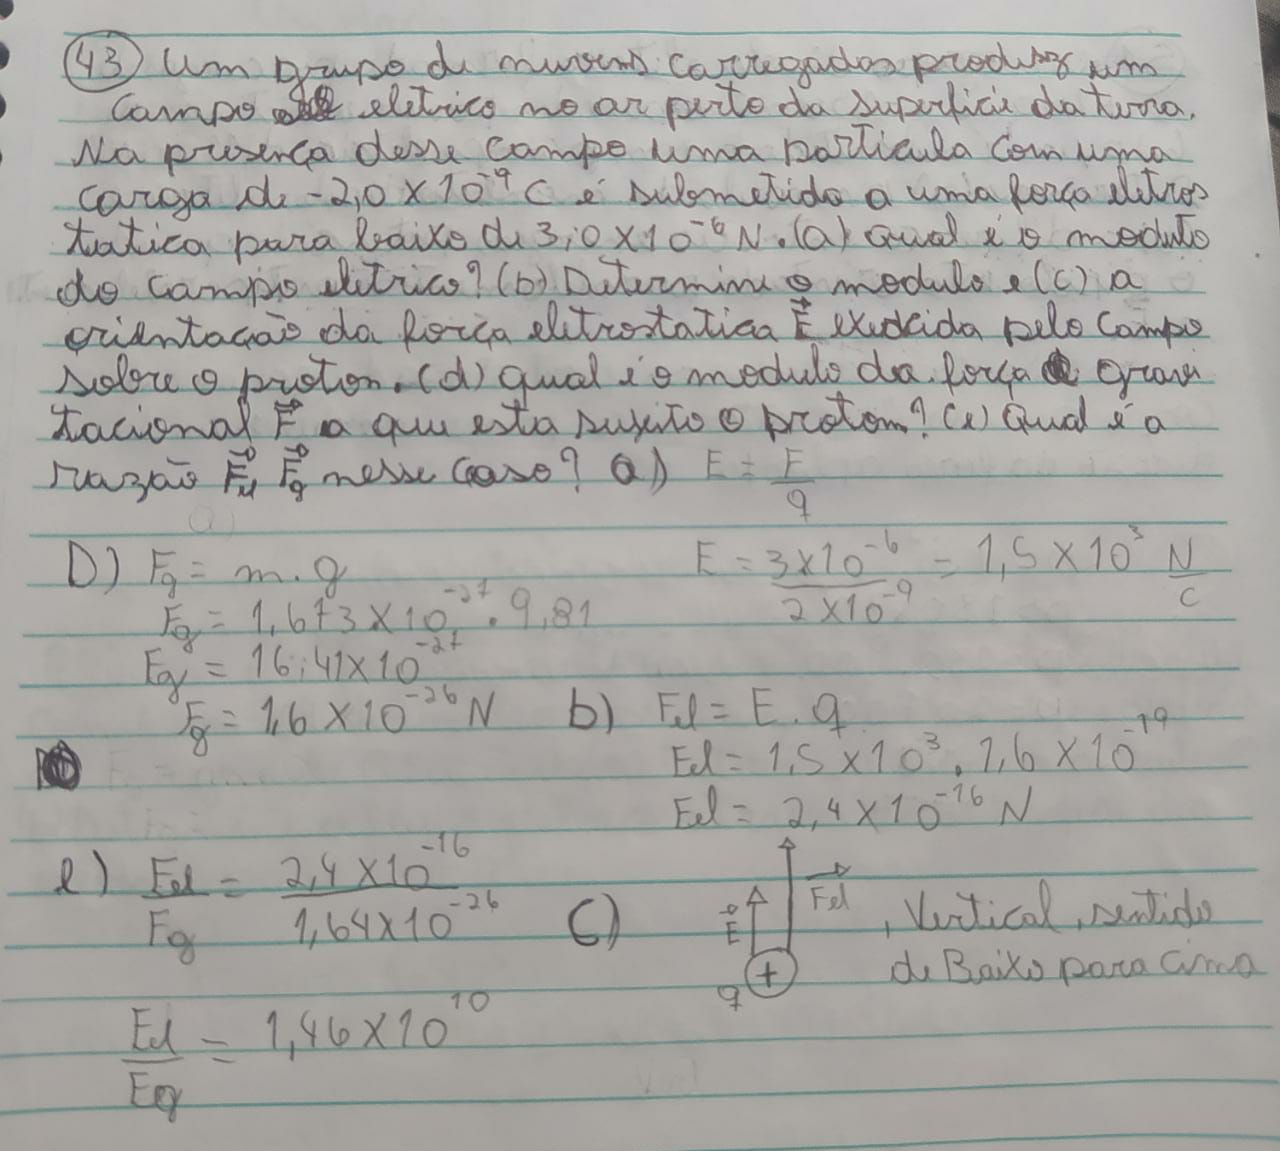 43 Um grupo de nuvens carregados produz um
campo eletrico no ar perto da superficie da terra.
Na presença desse campo uma particula com uma
carga de -2,0 x 10⁻⁹ C é submetido a uma força eletros
tatica para baixo de 3,0 x 10⁻⁶ N. (a) Qual é o modulo
do campo eletrico? (b) Determine o modulo e (c) a
orientação da força eletrostatica F⃗ exercida pelo campo
sobre o proton. (d) qual é o modulo da força gravi
tacional F⃗ a que esta sujeito o proton? (e) Qual é a
razão F⃗el F⃗g nesse caso? a) E = F/q
D) Fg = m.g
E = 3x10⁻⁶/2x10⁻⁹ = 1,5 x 10³ N/C
Fg = 1,673 x 10⁻²⁷ . 9,81
Fg = 16,41x10⁻²⁷
Fg = 1,6 x 10⁻²⁶ N
b) Fel = E.q
Fel = 1,5 x 10³ . 1,6 x 10⁻¹⁹
Fel = 2,4 x 10⁻¹⁶ N
e) Fel/Fg = 2,4 x 10⁻¹⁶/1,64x10⁻²⁶
C) E⃗ F⃗el q + , Vertical, sentido
de Baixo para cima
Fel/Fg = 1,46 x 10¹⁰